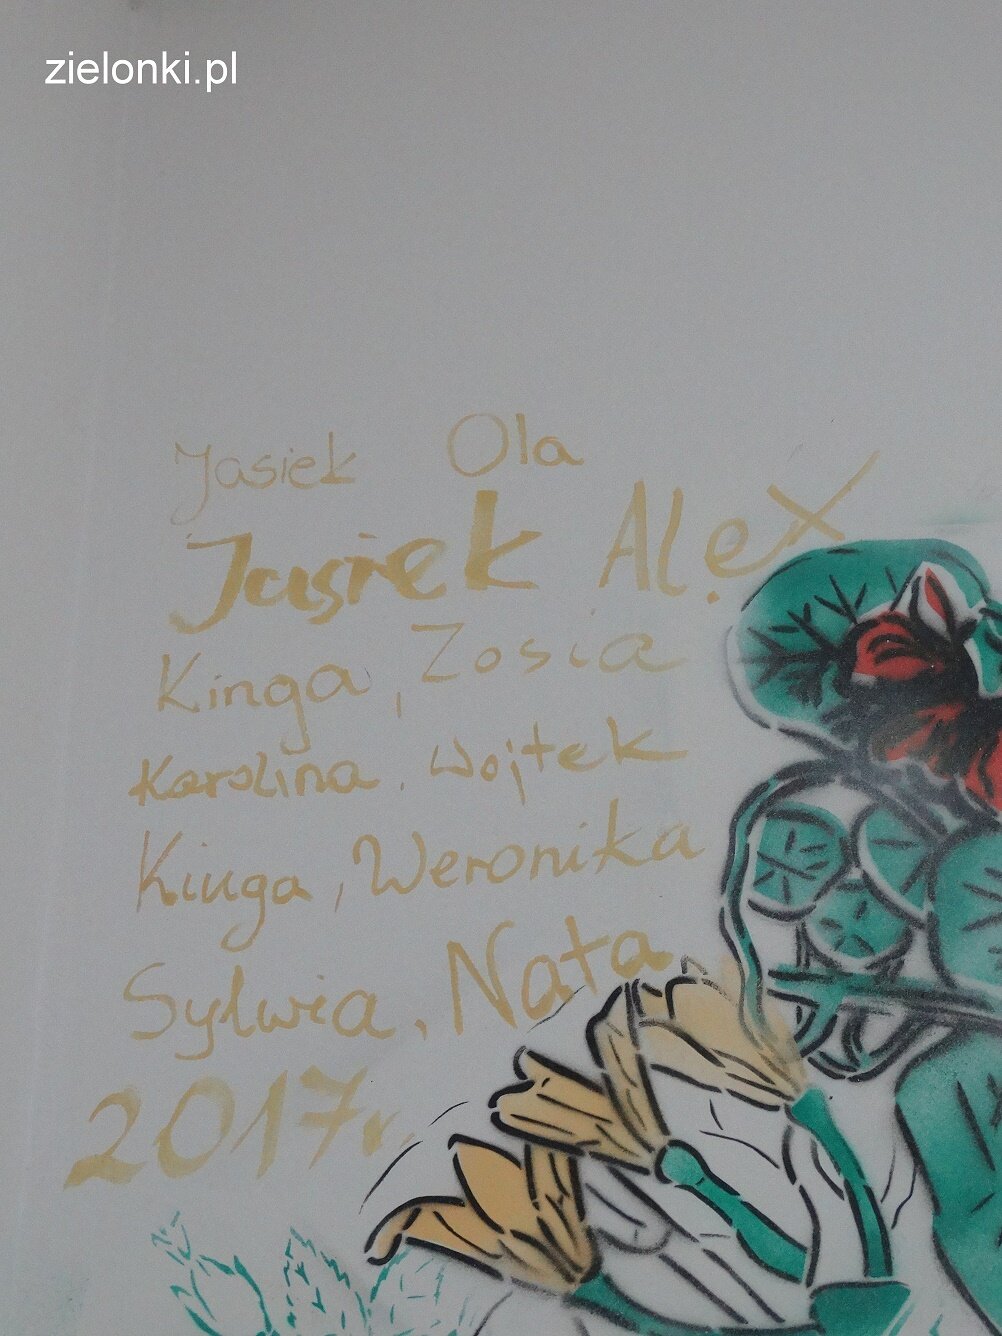 zielonki.pl
Jasiek Ola
Jasiek Alex
Kinga, Zosia
Karolina, Wojtek
Kinga, Weronika
Sylwia, Nata
2017r.